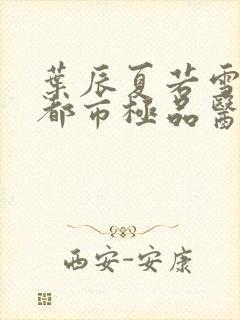 葉辰夏若雪
都市極品醫
西安-安康